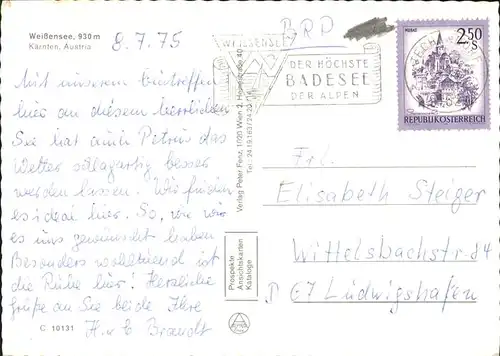 Weißensee, 930 m
Kärnten, Austria
8.7.75
Mit unserem Eintreffen
hier an diesem herrlichen
See hat auch Petrus das
Wetter schlagartig besser
werden lassen. Wir finden
es ideal hier. So, wie wir
es uns gewünscht haben
Besonders wohltuend ist
die Ruhe hier! Herzliche
Grüße an Sie beide Ihre
H. u. E. Brandt
C 10131
Verlag Peter Fenz, 1020 Wien 2
Prospekte
Ansichtskarten
Kataloge
BRD
WEISSENSEE
DER HÖCHSTE
BADESEE
DER ALPEN
MURAU
2.50
S
REPUBLIK ÖSTERREICH
Frl.
Elisabeth Steiger
Wittelsbachstr.
D 67 Ludwigshafen